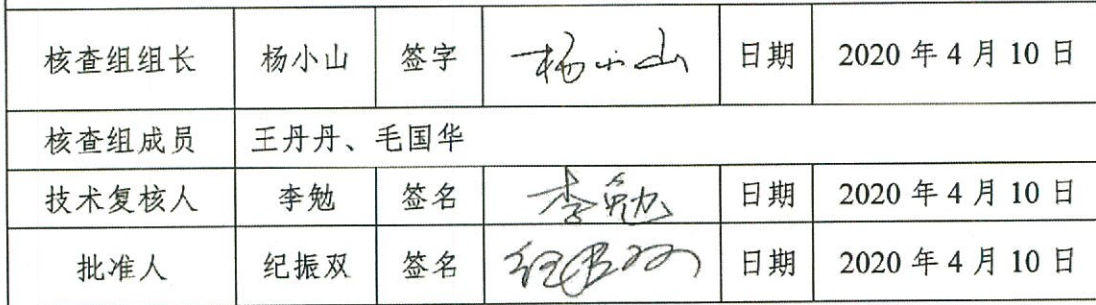 核查组组长 杨小山 签字 杨小山 日期 2020 年 4 月 10 日
核查组成员 王丹丹、毛国华
技术复核人 李勉 签名 李勉 日期 2020 年 4 月 10 日
批准人 纪振双 签名 纪振双 日期 2020 年 4 月 10 日